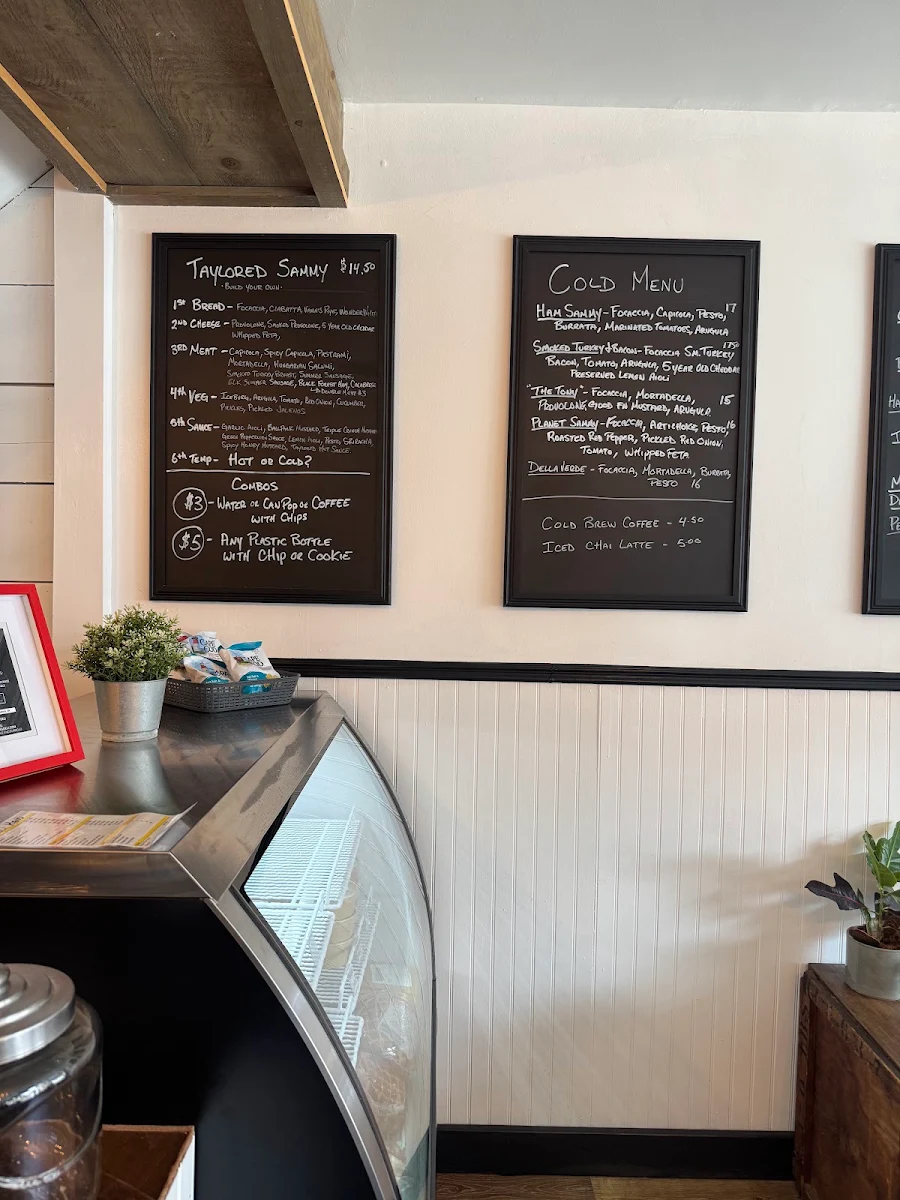 TAYLORED SAMMY $14.50
- BUILD YOUR OWN -
1ST BREAD - FOCACCIA, CIABATTA,
2ND CHEESE - PROVOLONE, SMOKED PROVOLONE, 5 YEAR OLD CHEDDAR
WHIPPED FETA,
3RD MEAT - CAPICOLA, SPICY CAPICOLA, PASTRAMI,
MORTADELLA, HUNGARIAN SALAMI,
SMOKED TURKEY BREAST, SUMMER SAUSAGE,
ELK SUMMER SAUSAGE, BLACK FOREST HAM, CALABRESE
DOUBLE MEAT $3
4TH VEG - ICEBURG, ARUGULA, TOMATO, RED ONION, CUCUMBER,
PICKLES, PICKLED
5TH SAUCE - GARLIC AIOLI, BALLPARK MUSTARD,
GREEN PEPPERCORN SAUCE, LEMON AIOLI, PESTO, SRIRACHA,
SPICY HONEY MUSTARD, TAYLORED HOT SAUCE.
6TH TEMP - HOT OR COLD?
COMBOS
$3 - WATER OR CAN POP OR COFFEE
WITH CHIPS
$5 - ANY PLASTIC BOTTLE
WITH CHIP OR COOKIE
COLD MENU
HAM SAMMY - FOCACCIA, CAPICOLA, PESTO, 17
BURRATA, MARINATED TOMATOES, ARUGULA
SMOKED TURKEY & BACON - FOCACCIA SM. TURKEY 17.50
BACON, TOMATO, ARUGULA, 5 YEAR OLD CHEDDAR
PRESERVED LEMON AIOLI
"THE TONY" - FOCACCIA, MORTADELLA, 15
PROVOLONE, GOOD F'N MUSTARD, ARUGULA.
PLANET SAMMY - FOCACCIA, ARTICHOKE, PESTO, 16
ROASTED RED PEPPER, PICKLED RED ONION,
TOMATO, WHIPPED FETA
DELLA VERDE - FOCACCIA, MORTADELLA, BURRATA,
PESTO 16
COLD BREW COFFEE - 4.50
ICED CHAI LATTE - 5.00
CAPE COD